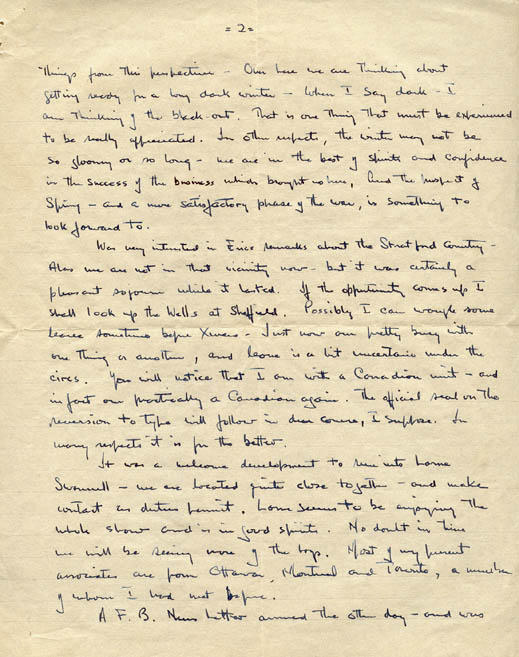 = 2 =
Things from this perspective - Over here we are thinking about
getting ready for a long dark winter - when I say dark - I
am thinking of the black-out. That is one thing that must be experienced
to be really appreciated. In other respects, the winter may not be
so gloomy or so long - we are in the best of spirits and confidence
in the success of the business which brought us here, and the prospect of
Spring - and a more satisfactory phase of the war, is something to
look forward to.
Was very interested in Erics remarks about the Stratford Country -
Alas we are not in that vicinity now - but it was certainly a
pleasant sojourn while it lasted. If the opportunity comes up I
shall look up the Wells at Sheffield. Possibly I can wangle some
leave sometime before Xmas - Just now am pretty busy with
one thing or another, and leave is a bit uncertain under the
circs. You will notice that I am with a Canadian unit - and
in fact am practically a Canadian again. The official seal on the
reversion to type will follow in due course, I suppose. In
many respects it is for the better.
It was a welcome development to run into Lorne
- we are located quite close together - and make
contact as duties permit. Lorne seems to be enjoying the
whole show and is in good spirits. No doubt in time
we will be seeing more of the boys. Most of my present
associates are from Ottawa, Montreal and Toronto, a number
of whom I had met before.
A F. B. News Letter arrived the other day - and was